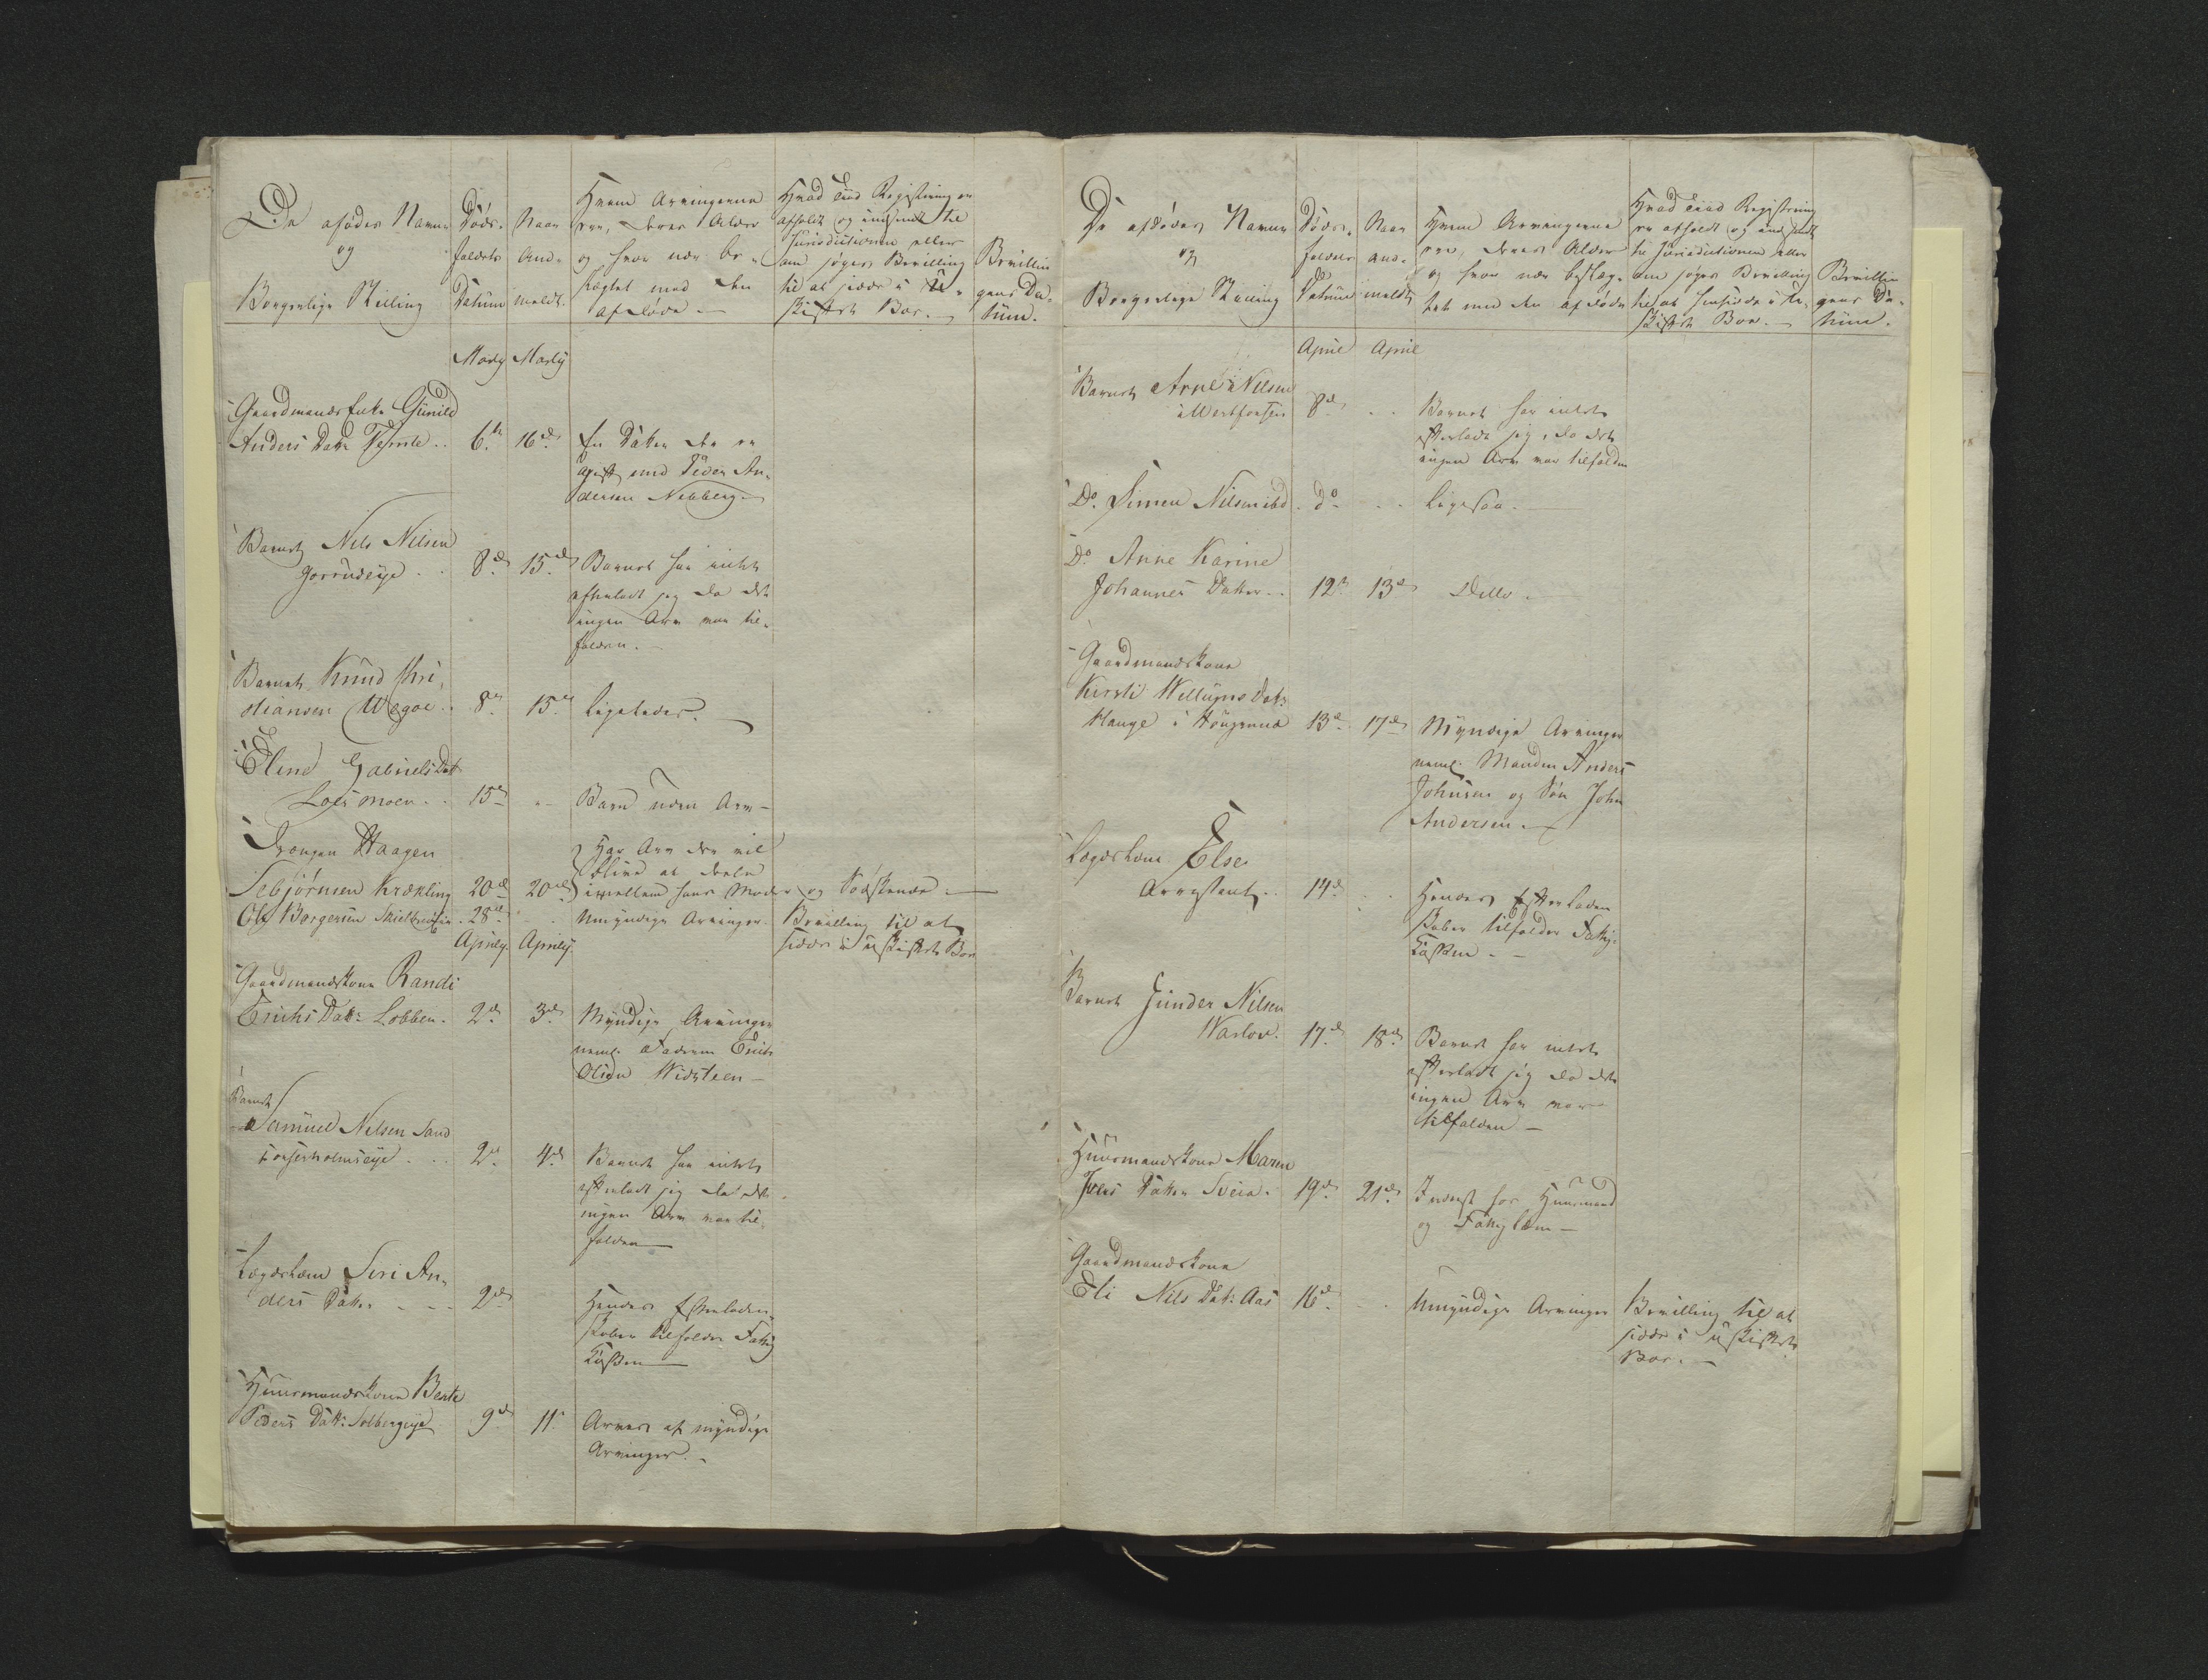 De afdødes Navne
og
Borgerlige Stilling
Døds-
faldets
Datum
Naar
An-
meldt.
Hvem Arvingerne
ere, deres Alder
og hvor nær be-
slægtet med den
afdøde.
Hvad Tiid Registering er
afholdt og indsendt til
Jurisdictionen eller
om søges Bevilling
til at sidde i U-
skiftet Boe.
Bevillin
gens Da-
tum.
Marty Marty
Gaardmands Enke Gunild
Anders Datter 6te 16de En Datter der er
gift med Peder An-
dersen Nebberg
Barnet Nels Nilsen
Gorrudeye 8de 15de Barnet har intet
efterladt sig da det
ingen Arv var til-
falden.
Barnet Knud Chri-
stiansen Wegoe 8de 15de Ligeledes.
Eline Gabriels Datt
Loesmoen 15de Barn uden Arv
Drengen Haagen Har Arv der vil
blive at deele
Sebjørnsen Krækling 20de 20de imellem hans Moder og Sødskende
Ole Borgersen 28de Umyndige Arvinger. Bevilling til at
sidde i uskiftet Boe
Aprily. Aprily.
Gaardmandskone Randi
Erichs Datt: Lobben. 2de 3de Myndige Arvinger
neml. Faderen Erich
Olsen Widsteen
Barnet
Samuel Nilsen Sand
2de 4de Barnet har intet
efterladt sig da det
ingen Arv var til-
falden
Lægdslem Siri An-
ders Datter 2de Hendes Efterladen-
skaber tilfalder Fattig
Cassen
Huusmandskone Berte
Peders Datt: Solbergeye 9de 11. Arves af myndige
Arvinger.
De afdødes Navne
og
Borgerlige Stilling
Døds-
faldets
Datum
Naar
an-
meldt
Hvem Arvingerne
ere, deres Alder
og hvor nær beslæg-
tet med den afdøde
Hvad Tiid Registering
er afholdt og indsendt
til Jurisdictionen eller
om søges Bevilling
til at hensidde i U-
skiftet Boe.
Bevillin
gens Da-
tum.
April April
Barnet Arne Nilsen
i Westfossen 8de Barnet har intet
efterladt sig, da det
ingen Arv var tilfalden
Do. Simen Nilsen ibid. do Ligesaa.
Do Anne Karine
Johannes Datter 12te 13de Ditto.
Gaardmandskone
Kirsti Wellums Dat:
Hauge i 13de 17de Myndige Arvinger
neml. Manden Anders
Johnsen og Søn John
Andersen.
Lægdslem Else
Arrestant 14de Hendes Efterladen
skaber tilfalder Fattig-
Cassen.
Barnet Gunder Nilsen
Warlov. 17de 18de Barnet har intet
efterladt sig da det
ingen Arv var
tilfalden
Huusmandskone Maren
Joens Datter 19de 21de Inderst hos Huusmand
og Fattiglem
Gaardmandskone
Eli Nils Dat: Aas 16de Umyndige Arvinger Bevilling til at
sidde i uskiftet
Boe.